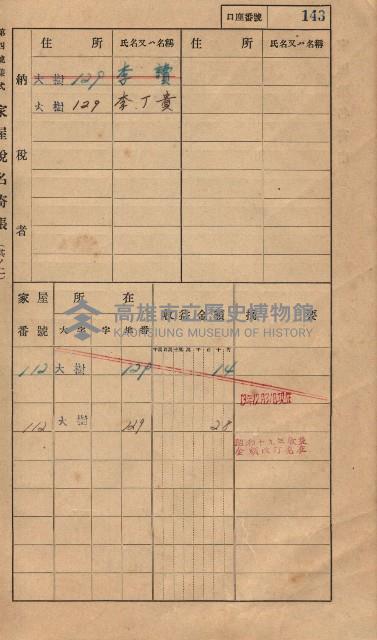 口座番號 143
第四號樣式 家屋稅名寄帳(其ノ二)
納稅者
住所 氏名又ハ名稱 住所 氏名又ハ名稱
大樹 129 李讀
大樹 129 李丁貴
家屋番號 所在 收益金額 摘要
大字 字 地番
112 大樹 129 14
112 大樹 129 28
昭和十九年收益
高雄市立歷史博物館
KAOHSIUNG MUSEUM OF HISTORY